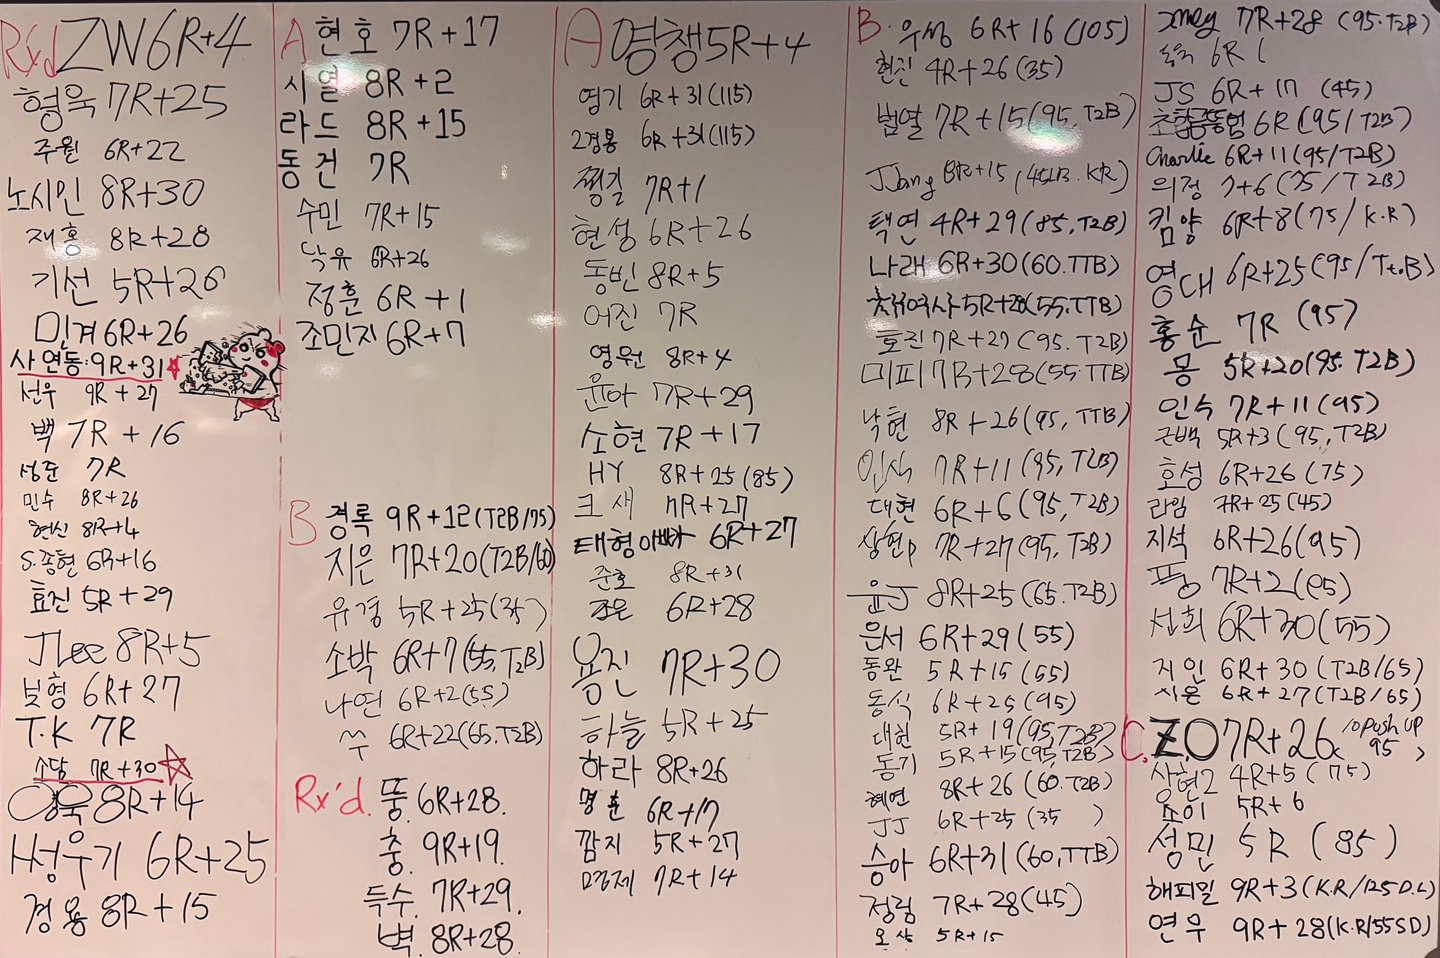 Rx'd ZW 6R+4
형욱 7R+25
주월 6R+22
노시민 8R+30
재홍 8R+28
기선 5R+26
민계 6R+26
사연동: 9R+31
선우 9R+27
백 7R+16
성준 7R
민수 8R+26
현신 8R+4
S.종현 6R+16
효진 5R+29
JLee 8R+5
보형 6R+27
T.K 7R
소담 7R+30
8R+14
6R+25
경용 8R+15
A 현호 7R+17
시열 8R+2
라드 8R+15
동건 7R
수민 7R+15
낙유 6R+26
정훈 6R+1
조민지 6R+7
B 경록 9R+12 (T2B/75)
지은 7R+20 (T2B/60)
유경 5R+25 (35)
소박 6R+7 (55, T2B)
나연 6R+2 (55)
쑤 6R+22 (65. T2B)
Rx'd. 뚱 6R+28.
충. 9R+19.
득수. 7R+29.
벽. 8R+28.
A 영챙 5R+4
영기 6R+31 (115)
2경용 6R+31 (115)
찡길 7R+1
현성 6R+26
동빈 8R+5
어진 7R
영원 8R+4
윤아 7R+29
소현 7R+17
HY 8R+25 (85)
크새 7R+27
태형아빠 6R+27
준호 8R+31
6R+28
용진 7R+30
하늘 5R+25
하라 8R+26
명훈 6R+17
깜지 5R+27
명제 7R+14
B. 우성 6R+16 (105)
현진 4R+26 (35)
범열 7R+15 (95, T2B)
JJang 8R+15 (45LB. K.R)
택연 4R+29 (85, T2B)
나래 6R+30 (60. TTB)
5R+20 (55. TTB)
호진 7R+27 (95. T2B)
미피 7R+28 (55. TTB)
낙현 8R+26 (95, TTB)
인식 7R+11 (95, T2B)
대현 6R+6 (95, T2B)
상현p 7R+27 (95, T2B)
윤J 8R+25 (65. T2B)
은서 6R+29 (55)
동완 5R+15 (55)
동식 6R+25 (95)
대현 5R+19 (95, T2B)
동기 5R+15 (95, T2B)
혜연 8R+26 (60. T2B)
JJ 6R+25 (35 )
승아 6R+31 (60, TTB)
정림 7R+28 (45)
5R+15
7R+28 (95. T2B)
6R
JS 6R+17 (45)
6R (95/T2B)
Charlie 6R+11 (95/T2B)
의정 7+6 (75/T2B)
킴양 6R+8 (75/K.R)
영대 6R+25 (95/T.B)
홍순 7R (95)
몽 5R+20 (95. T2B)
인수 7R+11 (95)
근백 5R+3 (95, T2B)
효성 6R+26 (75)
라임 7R+25 (45)
지석 6R+26 (95)
퐁 7R+2 (95)
선희 6R+30 (55)
지인 6R+30 (T2B/65)
시온 6R+27 (T2B/65)
C. Z.O 7R+26 10 push up
95 )
상현2 4R+5 (75)
쇼이 5R+6
성민 5R (85)
해피밀 9R+3 (K.R/125 D.L)
연우 9R+28 (K.R/55 S.D)